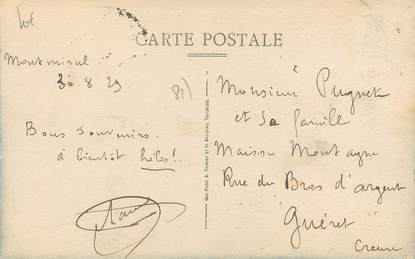 CARTE POSTALE
Montmirail
30.8.29
Bons souvenirs.
à bientôt hélas!!
Monsieur Pugnet
et sa famille
Maison Montagne
Rue du Bras d'argent
Guéret
Creuse